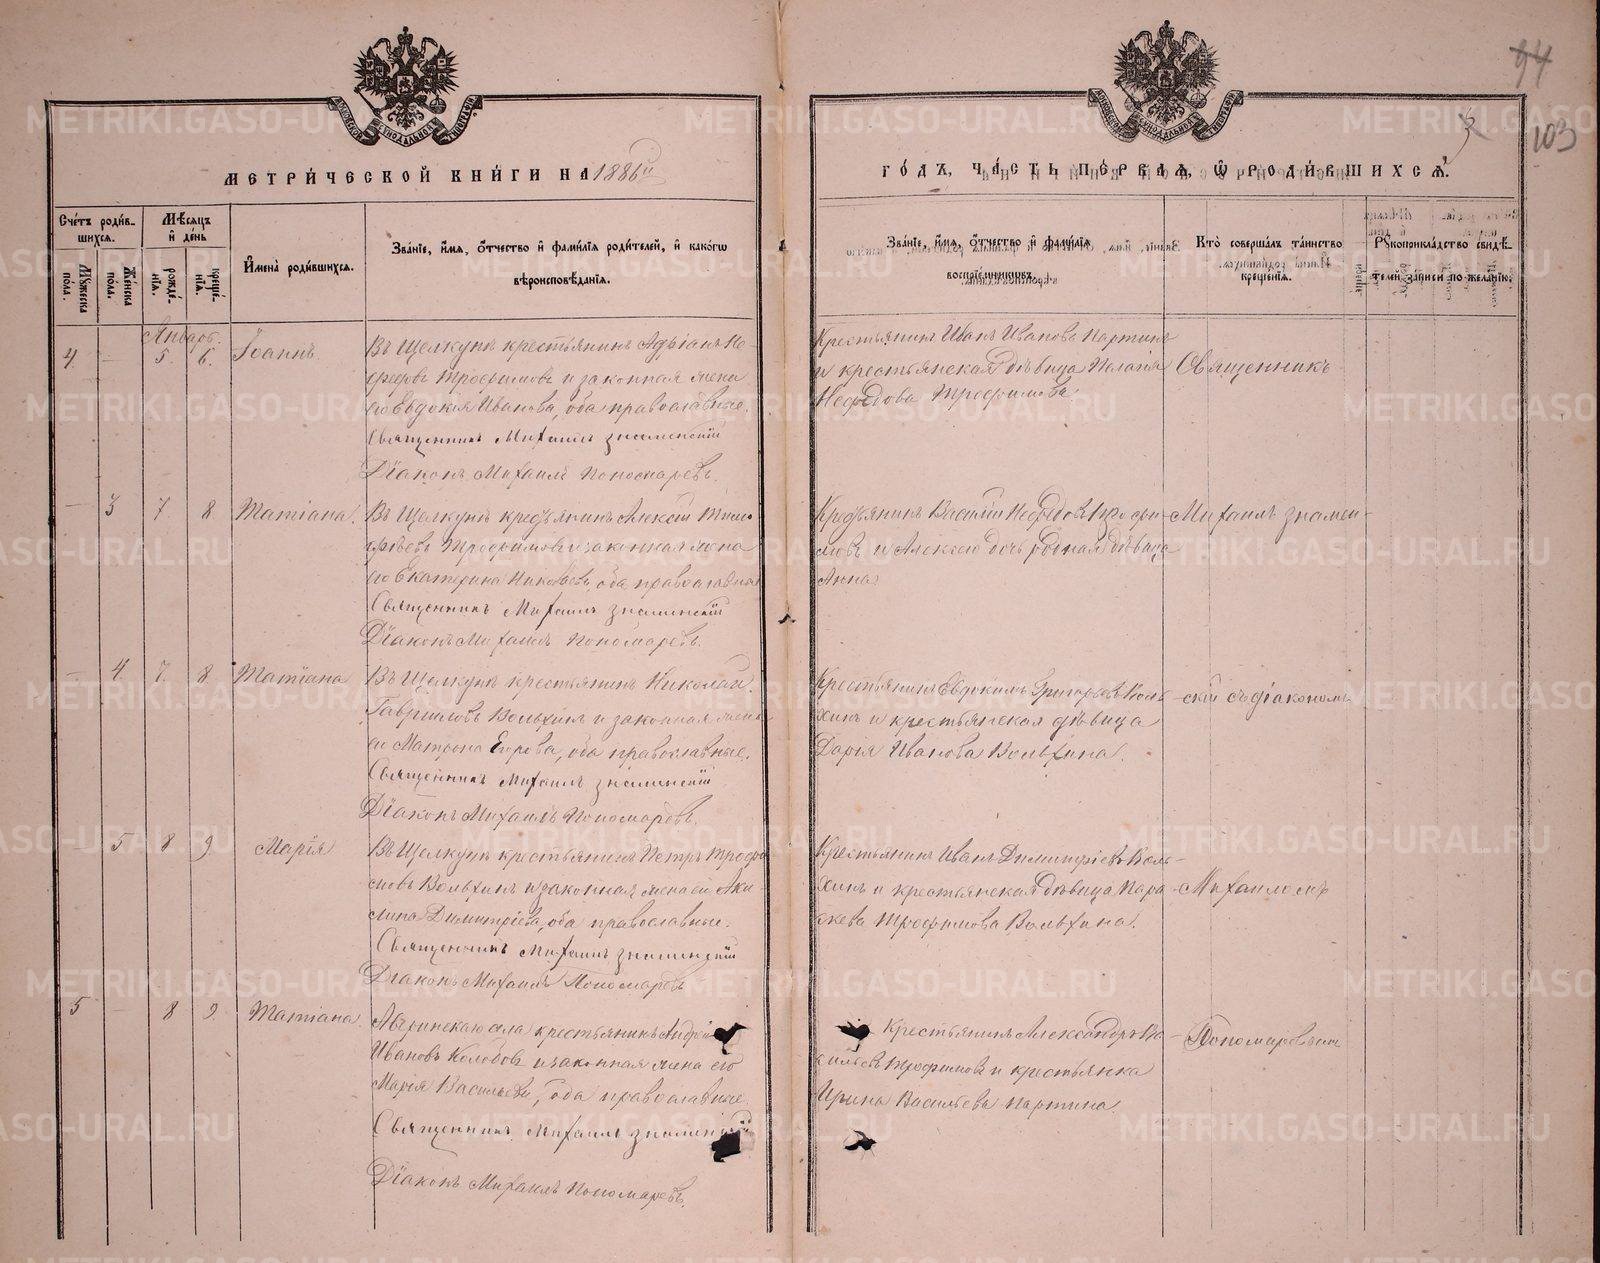 94
3
103
МЕТРИЧЕСКОЙ КНИГИ НА 1886й
ГОДЪ, ЧАСТЬ ПЕРВАЯ, Ѿ РОДИВШИХСЯ.
Счетъ родив-
шихся.
Мужеска пола.
Женска пола.
Мѣсяцъ и день
рожде-нія.
креще-нія.
Имена родившихся.
Званіе, имя, отчество и фамилія родителей, и какогѡ
вѣроисповѣданія.
Званіе, имя, отчество и фамилія
воспріемниковъ.
Кто совершалъ таинство
крещенія.
Рукоприкладство свидѣ-
телей записи по желанію.
Январь.
4. — 5. 6. Іоаннъ.
Въ Щелкунѣ крестьянинъ Адріанъ Не-
федовъ Трофимовъ и законная жена
его Евдокія Иванова, оба православные.
Священникъ Михаилъ Знаменскій
Діаконъ Михаилъ Пономаревъ.
Крестьянинъ Иванъ Ивановъ Партинъ
и крестьянская дѣвица Пелагія
Нефедова Трофимова.
Священникъ
— 3 7. 8 Татіана.
Въ Щелкунѣ крестьянинъ Алексѣй Тимо-
фѣевъ Трофимовъ и законная жена
его Екатерина Николаева, оба православные
Священникъ Михаилъ Знаменскій
Діаконъ Михаилъ Пономаревъ.
Крестьянинъ Василій Нефедовъ Трофи-
мовъ и Алексѣю дочь родная дѣвица
Анна
Михаилъ Знамен-
— 4 7. 8 Татіана
Въ Щелкунѣ крестьянинъ Николай
Гавриловъ Вольхинъ и законная жена
его Матрона Егорова, оба православные.
Священникъ Михаилъ Знаменскій
Діаконъ Михаилъ Пономаревъ.
Крестьянинъ Евдокимъ Григорьевъ Воль-
хинъ и крестьянская дѣвица
Дарія Иванова Вольхина.
скій съ діакономъ
— 5 8 9 Марія
Въ Щелкунѣ крестьянинъ Петръ Трофи-
мовъ Вольхинъ и законная жена его Аки-
лина Димитріева, оба православные.
Священникъ Михаилъ Знаменскій
Діаконъ Михаилъ Пономаревъ
Крестьянинъ Иванъ Димитріевъ Воль-
хинъ и крестьянская дѣвица Пара-
скева Трофимова Вольхина.
Михаиломъ
5 — 8 9. Татіана.
села крестьянинъ Андрей
Ивановъ Колобовъ и законная жена его
Марія Васильева, оба православные.
Священникъ Михаилъ Знаменскій
Діаконъ Михаилъ Пономаревъ.
Крестьянинъ Александръ Ва-
сильевъ Трофимовъ и крестьянка
Ирина Васильева Партина.
Пономаревымъ
METRIKI.GASO-URAL.RU